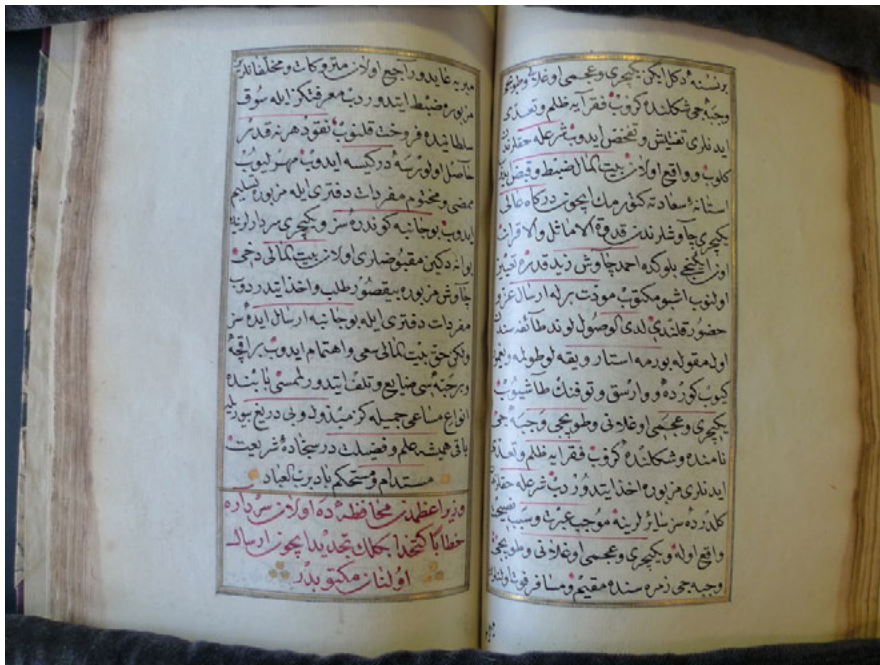 بر نسنه دكل ايكن يكيچرى و عجمى اوغلانى و طوپجى
وجبه جى شكلنده كزوب فقرايه ظلم و تعدى
ايدنلرى تفتيش و تفحص ايدوب شرعله حقلرندن
كلوب و واقع اولان بيت المال ضبط و قبض ايدوب
استانۀ سعادته كتورمك ايچون دركاه عالى
يكيچرى چاوشلرندن قدوة الاماثل والاقران
اون بلوكده احمد چاوش زيد قدره تعيين
اولنوب اشبو مكتوب مودت برله ارسال عز و
حضور قلندى لدى الوصول لوند طائفه سندن
اول مقوله بورمه استار و يقه لو طولمه
كيوب كورده و وارسق و توفنك طاشيوب
يكيچرى و عجمى اوغلانى و طوپجى و جبه جى
نامنده و شكلنده كزوب فقرايه ظلم و تعدى
ايدنلرى مزبوره اخذ ايتدوروب شرعله حقلرندن
كلدرده سز سائرلرينه موجب عبرت و سبب نصيحت
واقع اوله و يكيچرى و عجمى اوغلانى و طوپجى
وجبه جى زمره سنده مقيم و مسافر فوت اولنلردن
هيوبه عايد و راجع اولان متروكات و مخلفاتلرين
مزبوره ضبط ايتدوروب معرفتكز ايله سوق
سلطانيده فروخت قلنوب نقود هر نه قدر
حاصل اولورسه در كيسه ايدوب مهرليوب
ممضى و مختوم مفردات دفترى ايله مزبوره تسليم
ايدوب بو جانبه كوندره سز و يكيچرى سردارلرينه
بوانه دكين مقبوضلرى اولان بيت المالى دخى
چاوش مزبوره بيقصور طلب و اخذ ايتدروب
مفردات دفترى ايله بو جانبه ارسال ايده سز
ولكن حق بيت المالى سعى و اهتمام ايدوب بر اقچه
و بر حبه سى ضايع و تلف ايتدورلممسى بابنده
انواع مساعى جميله كز مبذول ولى دريغ بيوريله
باقى هميشه علم و فضيلت در سجادۀ شريعت
مستدام و مستحكم باد برب العباد
وزير اعظمدن محافظه ده اولان سرداره
خطابا كتخدا جملك تجديد ايچون ارسال
اولنان مكتوبدر